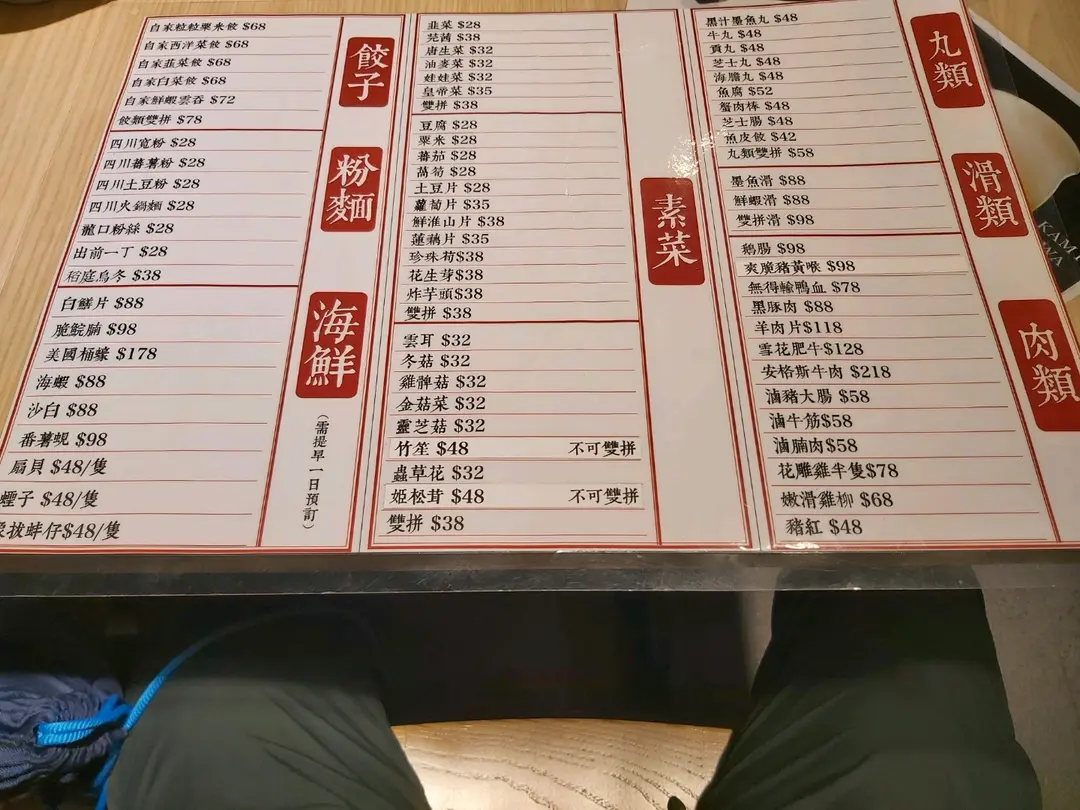 餃子
自家粒粒粟米餃 $68
自家西洋菜餃 $68
自家韮菜餃 $68
自家白菜餃 $68
自家鮮蝦雲吞 $72
餃類雙拼 $78
粉麵
四川寬粉 $28
四川蕃薯粉 $28
四川土豆粉 $28
四川火鍋麵 $28
龍口粉絲 $28
出前一丁 $28
稻庭烏冬 $38
海鮮
(需提早一日預訂)
白鱔片 $88
脆鯇腩 $98
美國桶蠔 $178
海蝦 $88
沙白 $88
番薯蜆 $98
扇貝 $48/隻
蟶子 $48/隻
象拔蚌仔$48/隻
素菜
韮菜 $28
芫茜 $38
唐生菜 $32
油麥菜 $32
娃娃菜 $32
皇帝菜 $35
雙拼 $38
豆腐 $28
粟米 $28
蕃茄 $28
萵筍 $28
土豆片 $28
蘿蔔片 $35
鮮淮山片 $38
蓮藕片 $35
珍珠筍$38
花生芽$38
炸芋頭$38
雙拼 $38
雲耳 $32
冬菇 $32
雞脾菇 $32
金菇菜 $32
靈芝菇 $32
竹笙 $48 不可雙拼
蟲草花 $32
姬松茸 $48 不可雙拼
雙拼 $38
丸類
黑汁墨魚丸 $48
牛丸 $48
貢丸 $48
芝士丸 $48
海膽丸 $48
魚腐 $52
蟹肉棒 $48
芝士腸 $48
魚皮餃 $42
丸類雙拼 $58
滑類
墨魚滑 $88
鮮蝦滑 $88
雙拼滑 $98
肉類
鵝腸 $98
爽脆豬黃喉 $98
無得輸鴨血 $78
黑豚肉 $88
羊肉片$118
雪花肥牛$128
安格斯牛肉 $218
滷豬大腸 $58
滷牛筋$58
滷腩肉$58
花雕雞半隻$78
嫩滑雞柳 $68
豬紅 $48